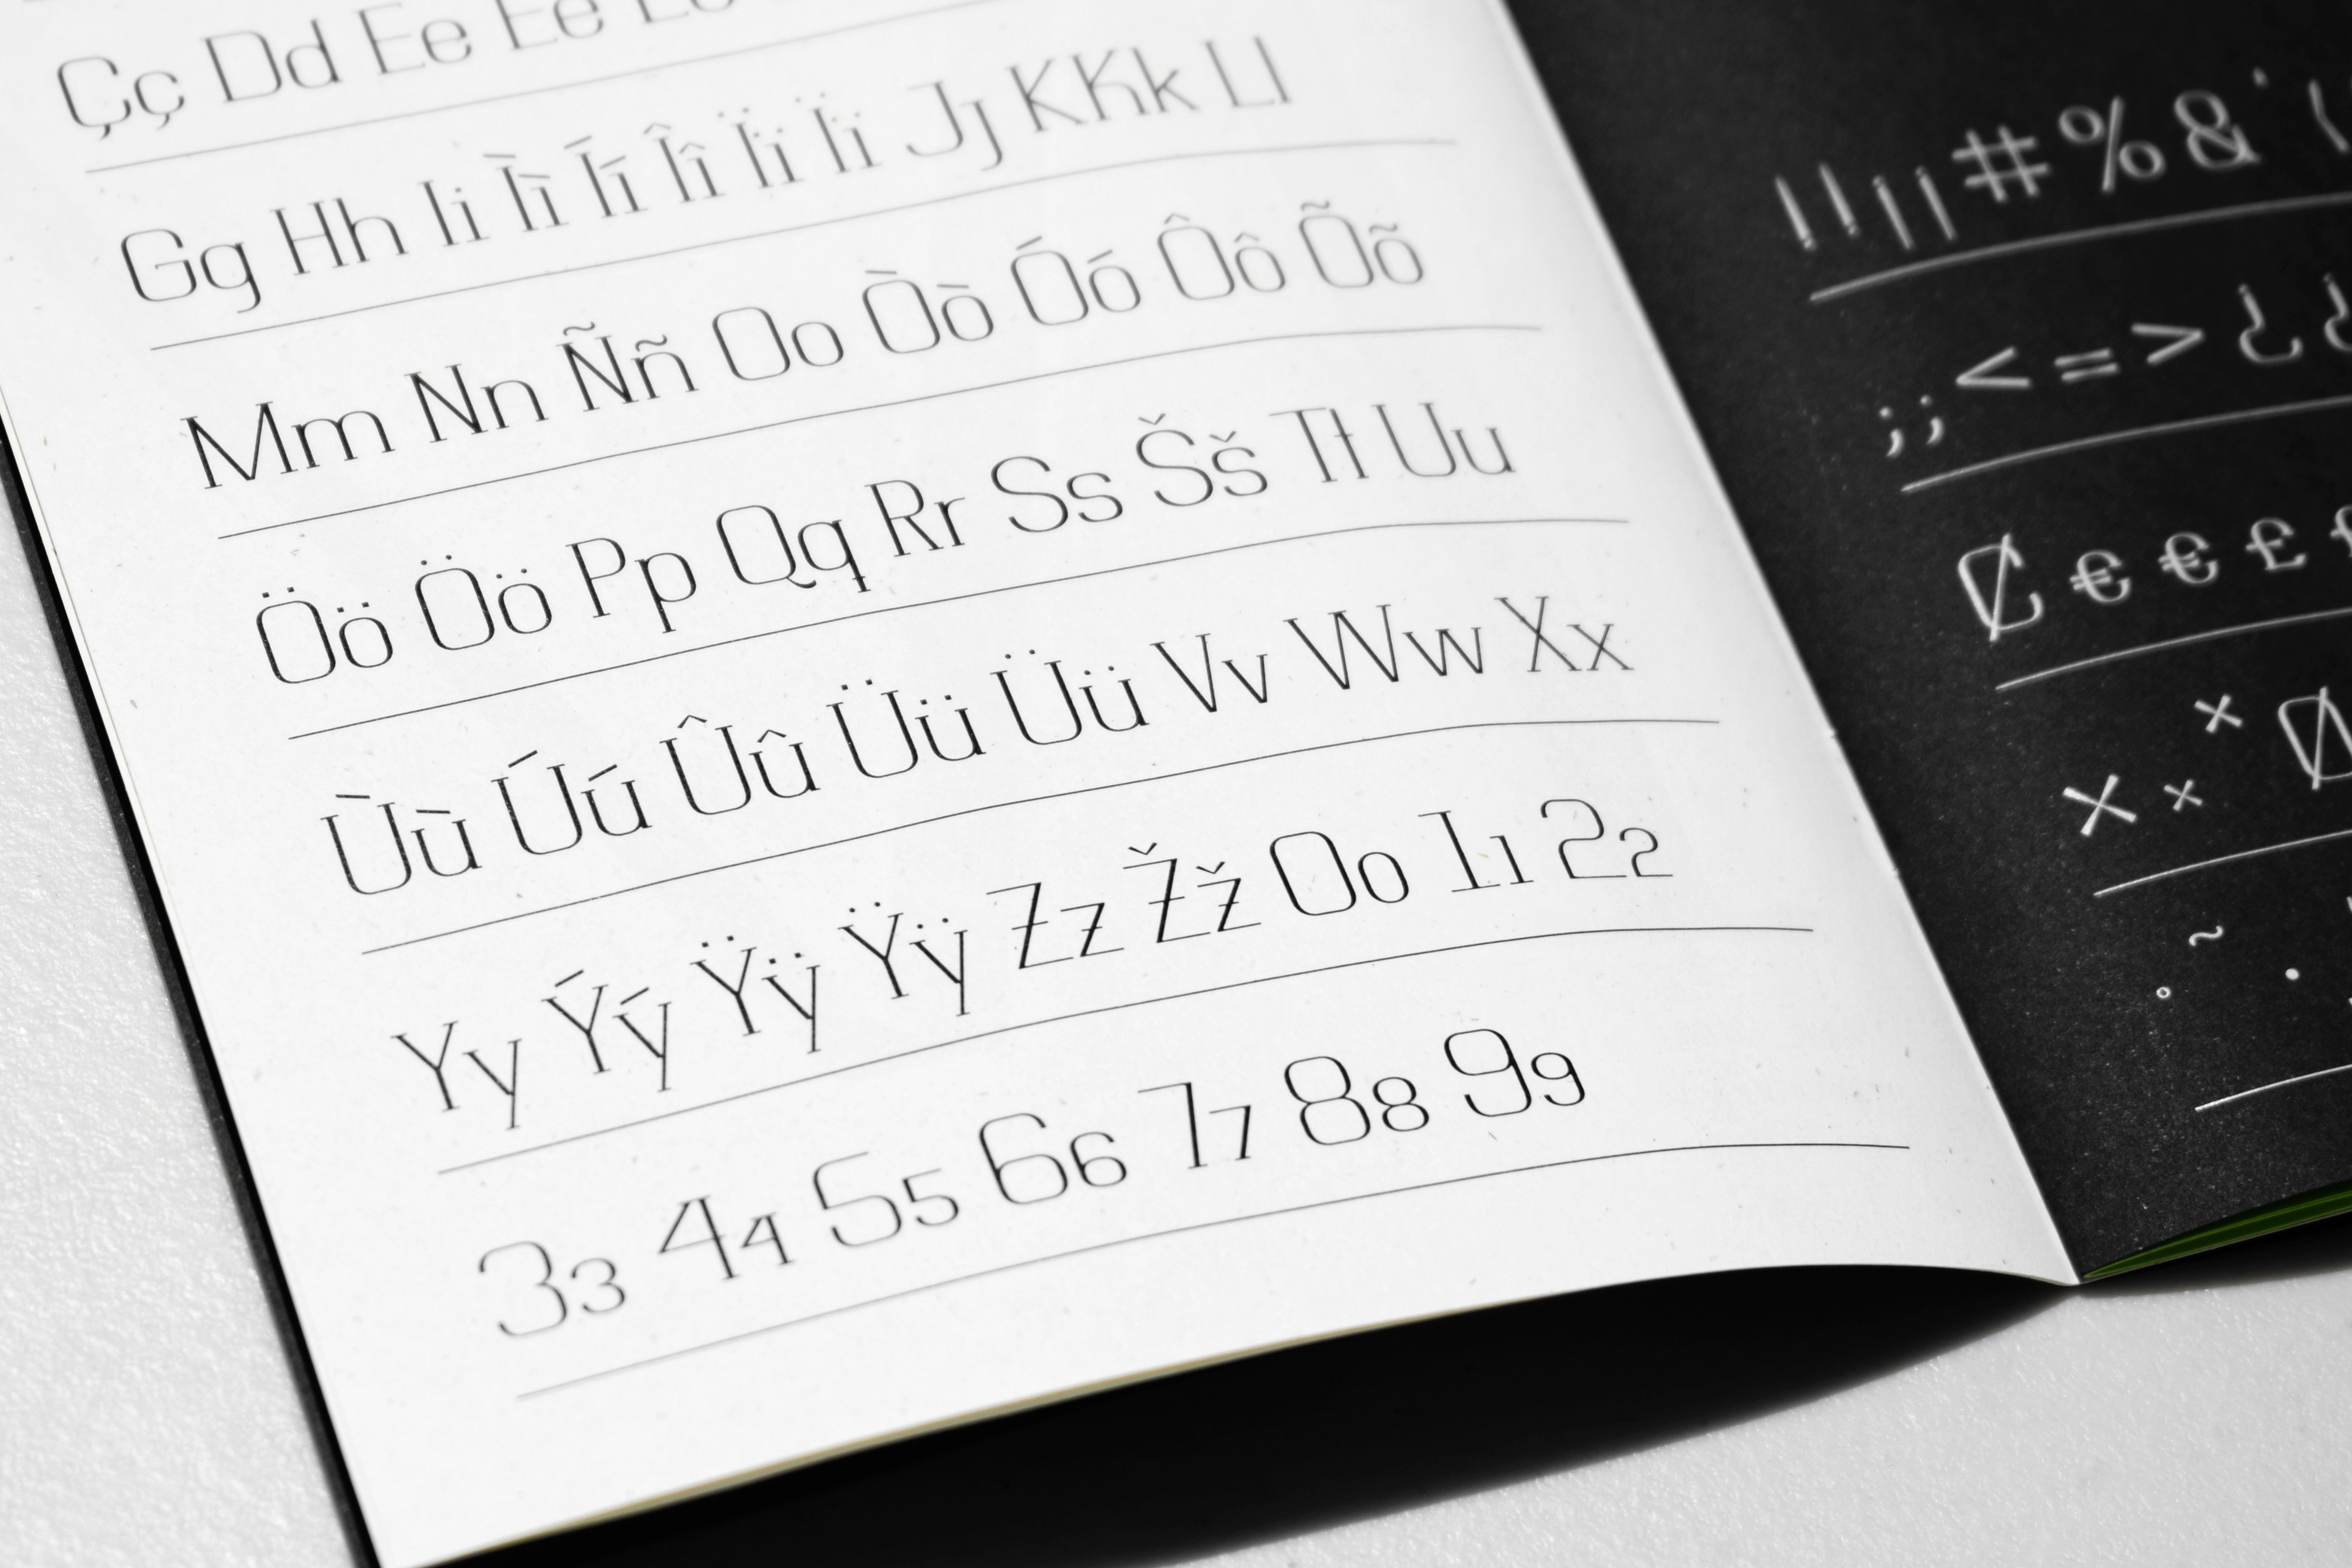 Çç Dd Ee Èè
Gg Hh Ii Ìì Íí Îî Ïï Ïï Jj KKk Ll
Mm Nn Ññ Oo Òò Óó Ôô Õõ
Öö Öö Pp Qq Rr Ss Šš Tt Uu
Ùù Úú Ûû Üü Üü Vv Ww Xx
Yy Ýý Ÿÿ Ÿÿ Zz Žž 0o 11 22
33 44 55 66 77 88 99
!!¡¡#%&'(
;;<=>¿¿
₡€€££